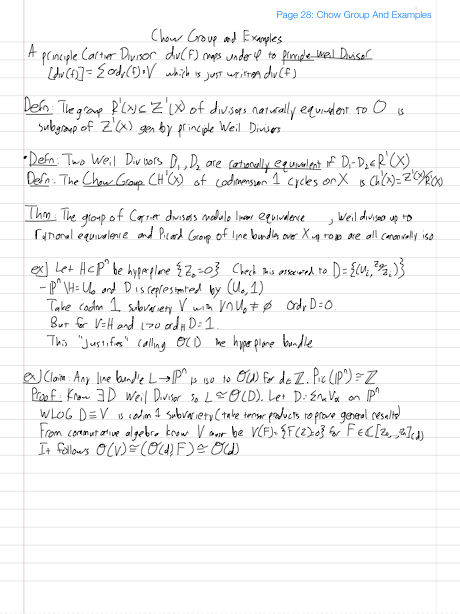 Page 28: Chow Group And Examples
Chow Group and Examples
A principle Cartier Divisor div(f) maps under φ to principle Weil Divisor
[div(f)] = Σ ord_V(f)·V which is just written div(f)
Defn: The group R¹(X) ⊆ Z¹(X) of divisors naturally equivalent to 0 is
subgroup of Z¹(X) gen by principle Weil Divisors
• Defn: Two Weil Divisors D₁, D₂ are rationally equivalent if D₁-D₂ ∈ R¹(X)
Defn: The Chow Group CH¹(X) of codimension 1 cycles on X is Ch¹(X) = Z¹(X)/R¹(X)
Thm: The group of Cartier divisors modulo linear equivalence , Weil divisors up to
rational equivalence and Picard Group of line bundles over X up to iso are all canonically iso
ex] Let H⊂ℙⁿ be hyperplane {Z₀=0} Check this associated to D = {(U_i, Z₀/Z_i)}
- ℙⁿ\H = U₀ and D is represented by (U₀, 1)
Take codim 1 subvariety V with V∩U₀ ≠ ∅ ord_V D = 0.
But for V=H and i>0 ord_H D = 1.
This "justifies" calling O(1) the hyperplane bundle
ex] Claim: Any line bundle L → ℙⁿ is iso to O(d) for d∈ℤ. Pic(ℙⁿ) ≅ ℤ
Proof: Know ∃ D Weil Divisor so L ≅ O(D). Let D = Σ n_α V_α on ℙⁿ
WLOG D = V is codim 1 subvariety (take tensor products to prove general results)
From commutative algebra know V must be V(F) = {F(Z)=0} for F∈ℂ[Z₀,...,Z_n]_(d)
It follows O(V) ≅ (O(d), F) ≅ O(d)